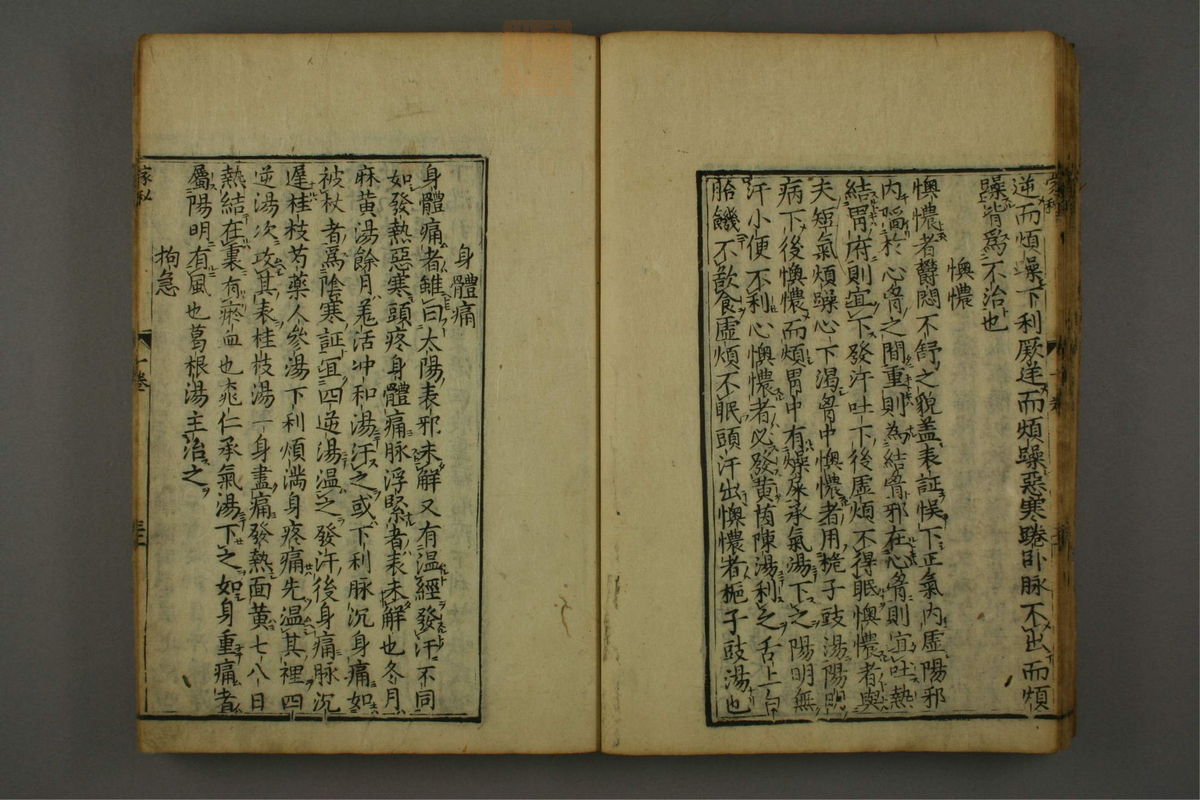 逆而煩躁下利厥逆而煩躁惡寒踡卧脉不出而煩
躁皆爲不治也
懊憹
懊憹者欝悶不舒之貌盖表証悞下正氣内虚陽邪
内陥於心胷之間重則為結胷邪在心胷則宜吐熱
結胃府則宜下發汗吐下後虚煩不得眠懊憹者與
夫短氣煩躁心下滿胷中懊憹者用梔子豉湯陽明
病下後懊憹而煩胃中有燥屎承氣湯下之陽明無
汗小便不利心懊憹者必發黄茵陳湯利之舌上白
胎饑不飲食虚煩不眠頭汗出懊憹者梔子豉湯也
身體痛
身體痛者雖曰太陽表邪未解又有温經發汗不同
如發熱惡寒頭疼身體痛脉浮緊者表未解也冬月
麻黄湯餘月羗活冲和湯汗之或下利脉沉身痛如
被杖者爲陰寒証宜四逆湯温之發汗後身痛脉沉
遲桂枝芍薬人參湯下利煩滿身疼痛先温其裡四
逆湯次攻其表桂枝湯一身盡痛發熱面黄七八日
熱結在裏有瘀血也桃仁承氣湯下之如身重痛者
屬陽明有風也葛根湯主治之
拘急
十巻